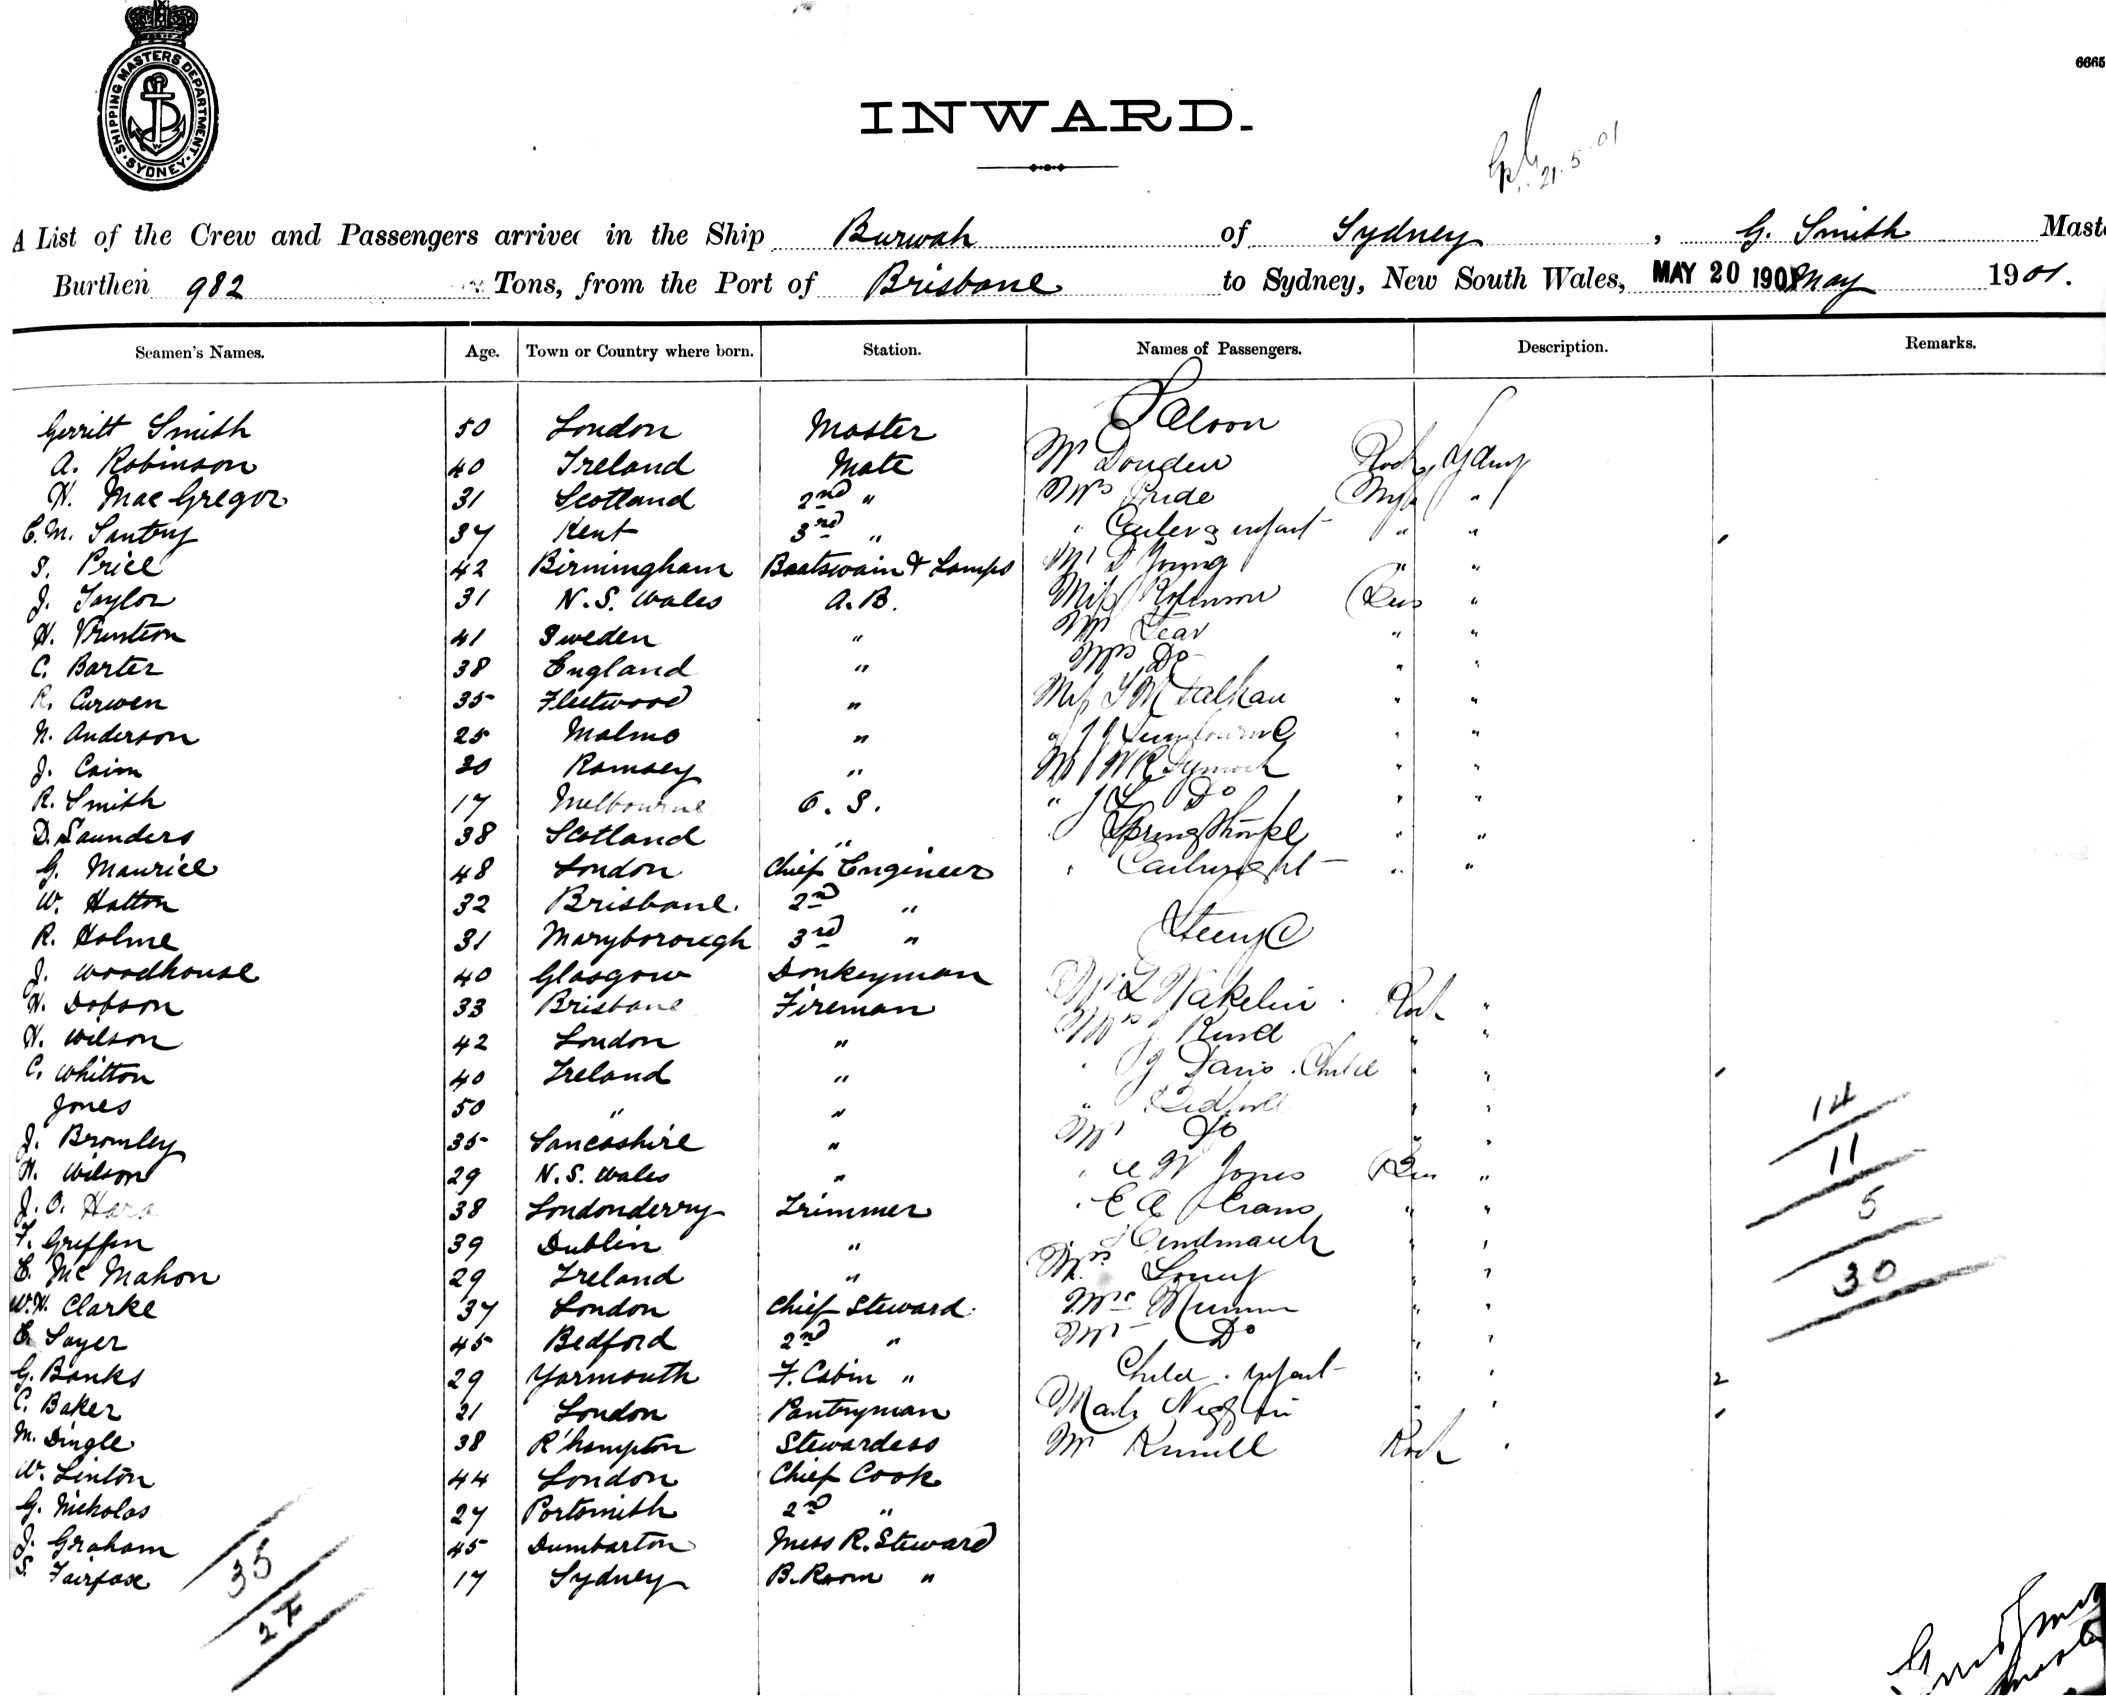 SHIPPING MASTERS DEPARTMENT. SYDNEY
6665
INWARD.
21.5.01
A List of the Crew and Passengers arrived in the Ship Burwah of Sydney, G. Smith Maste
Burthen 982 Tons, from the Port of Brisbane to Sydney, New South Wales, MAY 20 1901 May 1901.
Seamen's Names. Age. Town or Country where born. Station. Names of Passengers. Description. Remarks.
Saloon
Gerritt Smith 50 London Master
A. Robinson 40 Ireland Mate Mr Rock Sydney
H. Mac Gregor 31 Scotland 2nd " Mrs Pride "
C.M. Santry 37 Kent 3rd " " Carter & infant " "
S. Price 42 Birmingham Boatswain & Lamps Mr D Young " "
J. Taylor 31 N.S. Wales A.B. Miss Robinson Bris "
H. 41 Sweden " Mr " "
C. Barter 38 England " Mrs Do " "
R. Curwen 35 Fleetwood " Miss " "
N. Anderson 25 Malmo " " "
J. Cairn 30 Ramsey " Mr W R Dymock " "
R. Smith 17 Melbourne O.S. " Do " "
D. Saunders 38 Scotland " Springthorpe " "
G. Maurice 48 London Chief Engineer " Cartwright " "
W. Hatton 32 Brisbane. 2nd "
R. Holme 31 Maryborough 3rd "
Steerge
J. Woodhouse 40 Glasgow Donkeyman
H. Dobson 33 Brisbane Fireman Mr L Wakelin Rock "
H. Wilson 42 London " Mrs " "
C. Whitton 40 Ireland " J Davis. Child " "
Jones 50 " " " " "
J. Bromley 35 Lancashire " Mr Do " "
H. Wilson 29 N.S. Wales " " W Jones Bris "
J. O. Hara 38 Londonderry Trimmer " E A Evans " "
F. Griffin 39 Dublin " Hindmarch " "
E. Mc Mahon 29 Ireland " Mrs " "
W.H. Clarke 37 London Chief Steward. Mrs " "
E. Sayer 45 Bedford 2nd " Mr Do " "
G. Banks 29 Yarmouth F. Cabin " Child. infant " " 2
C. Baker 21 London Pantryman " "
M. Dingle 38 R'hampton Stewardess Mr Rock "
W. Linton 44 London Chief Cook
G. Nicholas 27 Portsmith 2nd "
J. Graham 45 Dumbarton Mess R. Steward
S. Fairfax 17 Sydney B. Room "
14
11
5
30
35
27